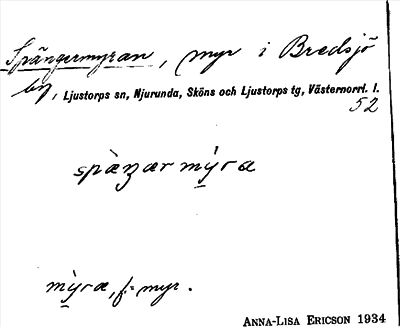 Spängermyran, myr i Bredsjö
by, Ljustorps sn, Njurunda, Sköns och Ljustorps tg, Västernorrl. l.
52
spàŋar mỳra
mỳra, f = myr.
ANNA-LISA ERICSON 1934